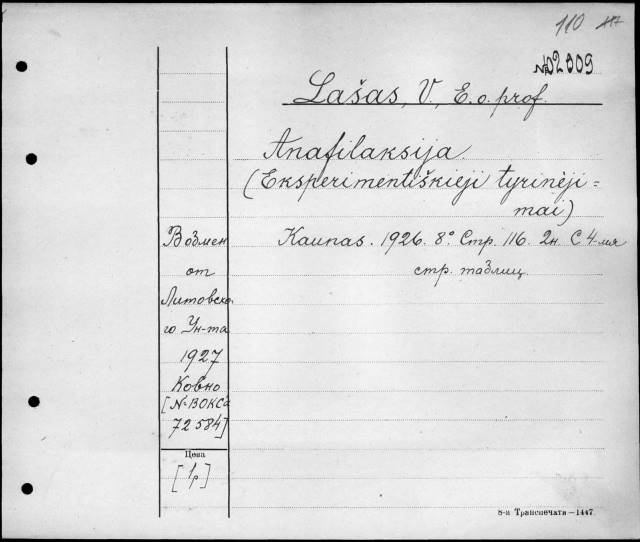 110
№ D2009
Lašas, V., E. o. prof.
Anafilaksija.
(Eksperimentiškieji tyrinėji=
mai)
Kaunas. 1926. 8° Стр. 116. 2н. С 4-мя
стр. таблиц.
Вобмен
от
Литовско-
го Ун-та
1927
Ковно
[№ ВОКСа
72584]
Цена
[1р]
8-я Транспечати—1447.